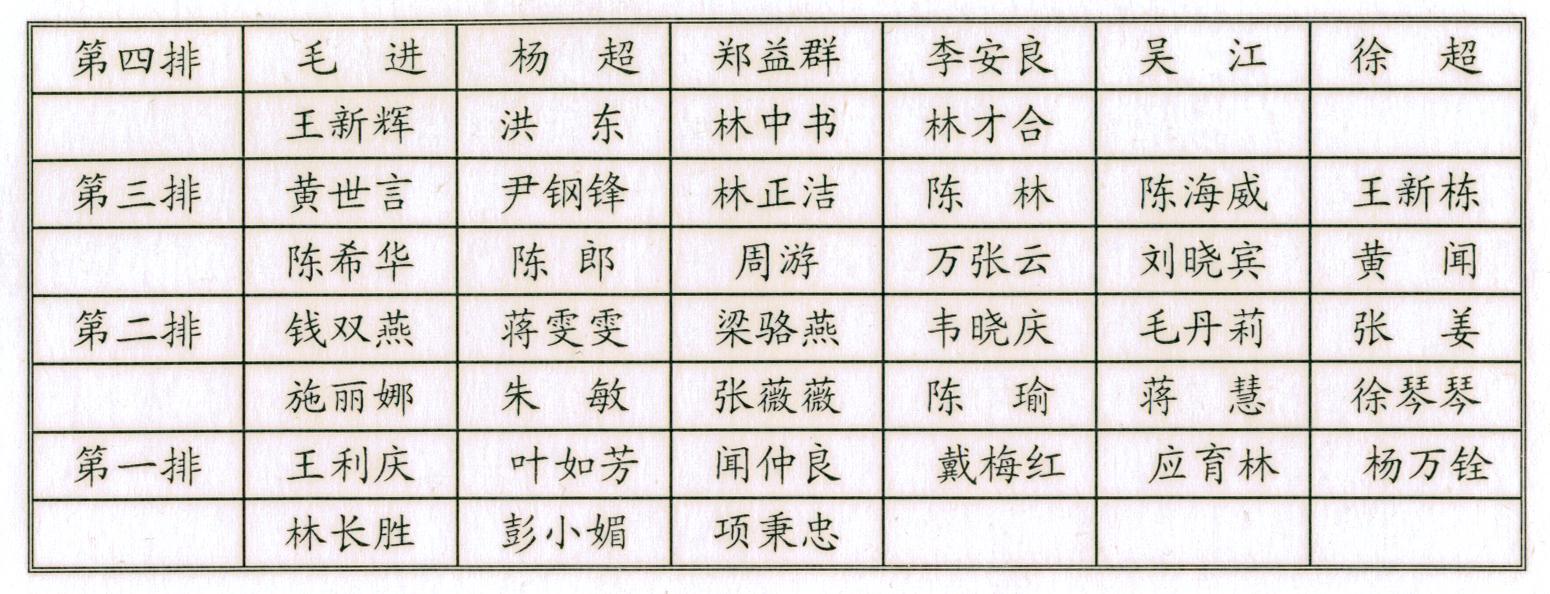 第四排 毛 进 杨 超 郑益群 李安良 吴 江 徐 超
王新辉 洪 东 林中书 林才合
第三排 黄世言 尹钢锋 林正洁 陈 林 陈海威 王新栋
陈希华 陈 郎 周游 万张云 刘晓宾 黄 闻
第二排 钱双燕 蒋雯雯 梁骆燕 韦晓庆 毛丹莉 张 姜
施丽娜 朱 敏 张薇薇 陈 瑜 蒋 慧 徐琴琴
第一排 王利庆 叶如芳 闻仲良 戴梅红 应育林 杨万铨
林长胜 彭小媚 项秉忠